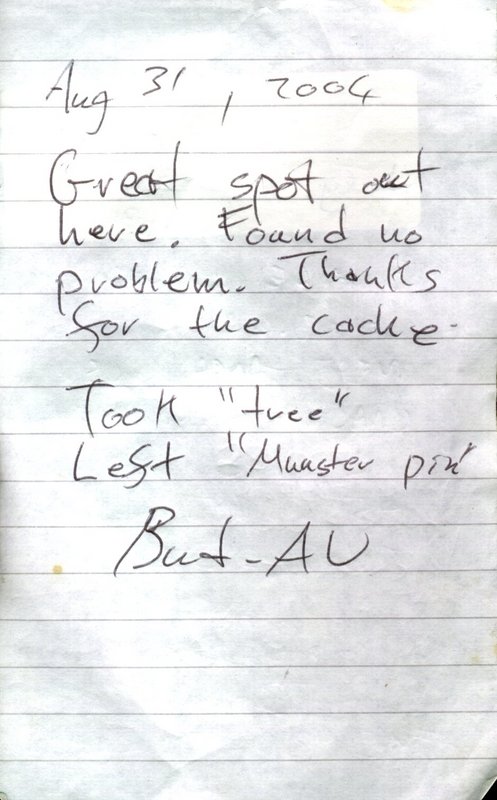 Aug 31, 2004
Great spot out
here. Found no
problem. Thanks
for the cache.
Took "tree"
Left "Munster pin"
But-AU